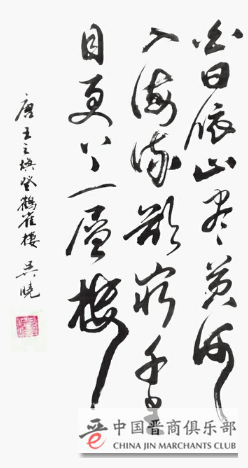 白日依山尽黄河
入海流欲窮千里
目更上一層樓
唐王之焕登鹤雀樓 吴晓
中国晋商俱乐部
CHINA JIN MARCHANTS CLUB